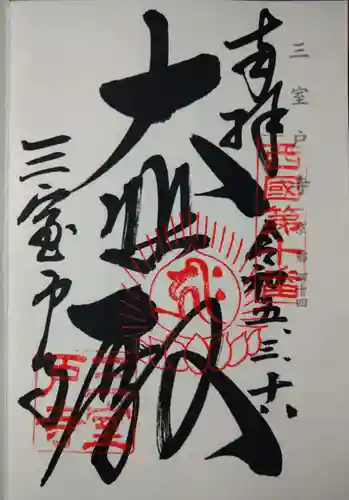 三室戸寺
奉拝
令和五.三.十六
西國第十番
大悲殿
三室戸寺
三室
戸寺